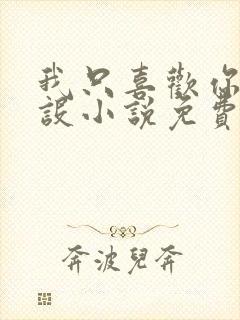 我只喜歡你
設小說免費
奔波兒奔